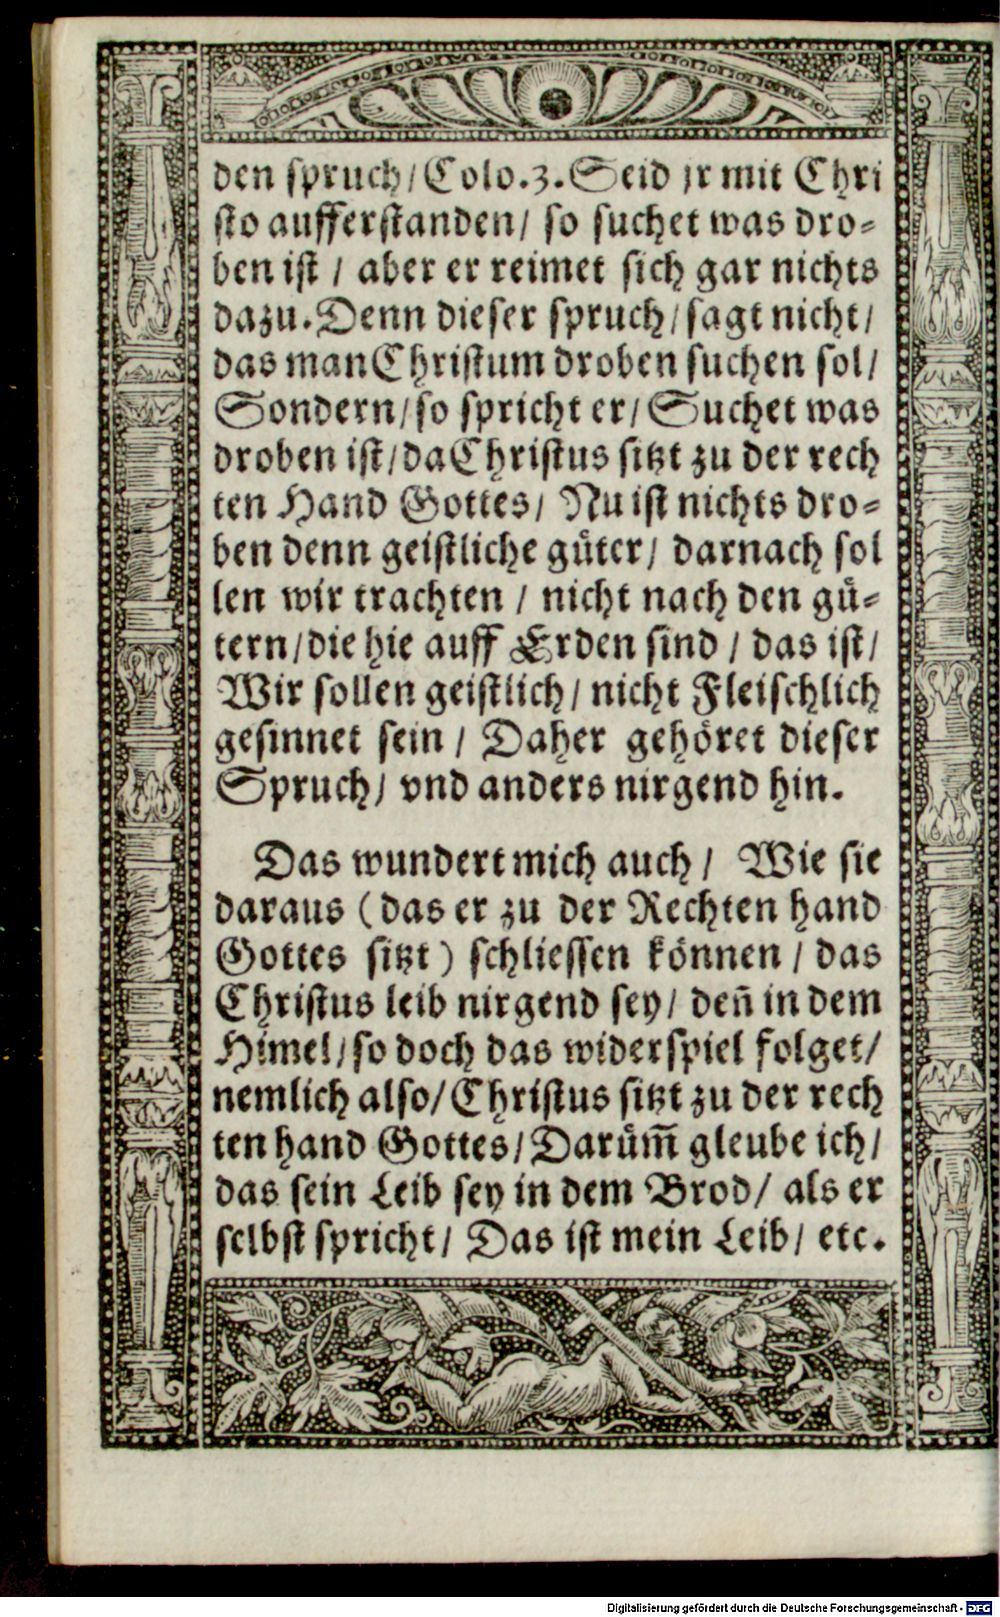 den spruch / Colo. 3. Seid jr mit Chri
sto aufferstanden / so suchet was dro⸗
ben ist / aber er reimet sich gar nichts
dazu. Denn dieser spruch / sagt nicht /
das man Christum droben suchen sol /
Sondern / so spricht er / Suchet was
droben ist / da Christus sitzt zu der rech
ten Hand Gottes / Nu ist nichts dro⸗
ben denn geistliche guͤter / darnach sol
len wir trachten / nicht nach den guͤ⸗
tern / die hie auff Erden sind / das ist /
Wir sollen geistlich / nicht Fleischlich
gesinnet sein / Daher gehoͤret dieser
Spruch / vnd anders nirgend hin.
Das wundert mich auch / Wie sie
daraus (das er zu der Rechten hand
Gottes sitzt) schliessen koͤnnen / das
Christus leib nirgend sey / den̄ in dem
Himel / so doch das widerspiel folget /
nemlich also / Christus sitzt zu der rech
ten hand Gottes / Daruͤm̄ gleube ich /
das sein Leib sey in dem Brod / als er
selbst spricht / Das ist mein Leib / etc.
Digitalisierung gefördert durch die Deutsche Forschungsgemeinschaft - DFG